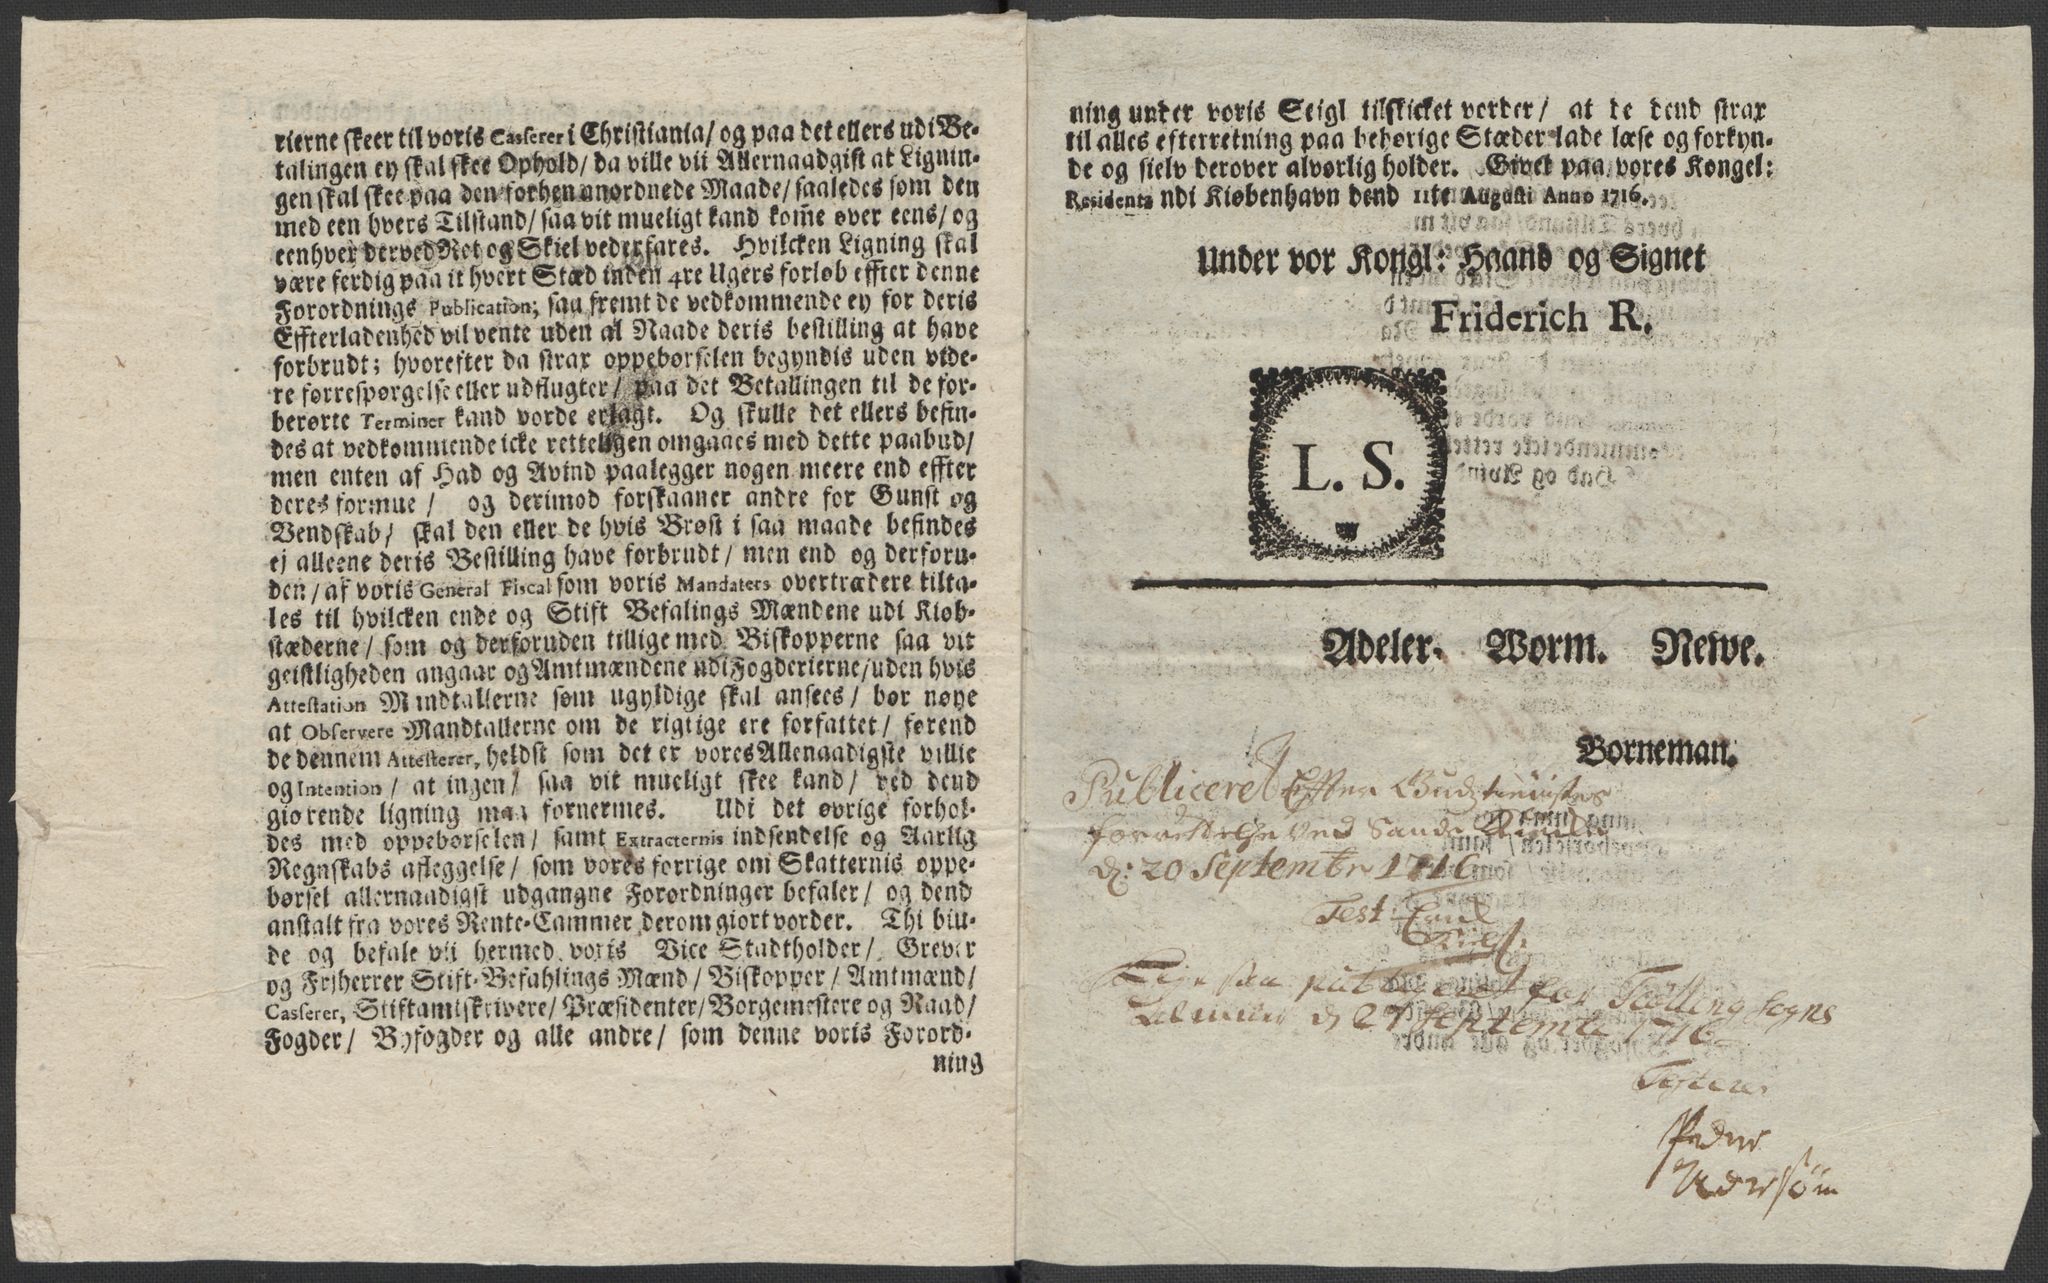 rierne skeer til voris Casserer i Christiania/ og paa det ellers udi Be-
talingen ey skal skee Ophold/ da ville vii Allernaadgist at Lignin-
gen skal skee paa den forhen anordnede Maade/ saaledes som den
med een hvers Tilstand/ saa vit mueligt kand kom̃e øver eens/ og
eenhver derved Ret og Skiel vederfares. Hvilcken Ligning skal
være ferdig paa it hvert Stæd inden 4re Ugers forløb effter denne
Forordnings Publication; saa fremt de vedkommende ey for deris
Effterladenhed vil vente uden al Naade deris bestilling at have
forbrudt; hvorefter da strax oppebørselen begyndis uden vide-
re førrespørgelse eller udflugter/ paa det Betallingen til de for-
berørte Terminer kand vorde erlagt. Og skulle det ellers befin-
des at vedkommende icke retteligen omgaaes med dette paabud/
men enten af Had og Avind paalegger nogen meere end effter
deres formue/ og derimod forskaaner andre for Gunst og
Vendskab/ skal den eller de hvis Brøst i saa maade befindes
ej alleene deris Bestilling have forbrudt/ men end og derforu-
den/ af voris General Fiscal som voris Mandaters overtrædere tilta-
les til hvilcken ende og Stift Befalings Mændene udi Kiøb-
stæderne/ som og derforuden tillige med Biskopperne saa vit
geistligheden angaar og Amtmændene udi Fogderierne/ uden hvis
Attestation Mandtallerne som ugyldige skal ansees/ bør nøye
at Observere Mandtallerne om de rigtige ere forfattet/ førend
de dennem Attesterer, heldst som det er vores Allenaadigste villie
og Intention/ at ingen/ saa vit mueligt skee kand/ ved dend
giørende ligning maa fornermes. Udi det øvrige forhol-
des med oppebørselen/ samt Extracternis indsendelse og Aarlig
Regnskabs afleggelse/ som vores forrige om Skatternis oppe-
børsel allernaadigst udgangne Forordninger befaler/ og dend
anstalt fra vores Rente-Cammer derom giort vorder. Thi biu-
de og befale vii hermed voris Vice Stadtholder/ Grever
og Friherrer Stift-Befahlings Mænd/ Biskopper/ Amtmænd/
Casserer, Stiftamtskrivere/ Præsidenter/ Borgemestere og Raad/
Fogder/ Byfogder og alle andre/ som denne voris Forord-
ning
ning under voris Seigl tilskicket vorder/ at de dend strax
til alles efterretning paa behørige Stæder lade læse og forkyn-
de og sielv derover alvorlig holder. Givet paa vores Kongel:
Residentz udi Kiøbenhavn dend 11te Augusti Anno 1716.
Under vor Kongl: Haand og Signet
Friderich R.
L. S.
Adeler. Worm. Newe.
Borneman.
Publiceret Effter Gudztienistes
forrettelse Ved Sande
d: 20 Septembr 1716
Test
publiceret for Tølling Sogns
Almue d 27 Septembr 1716
Testerer
Peder
Andersøn